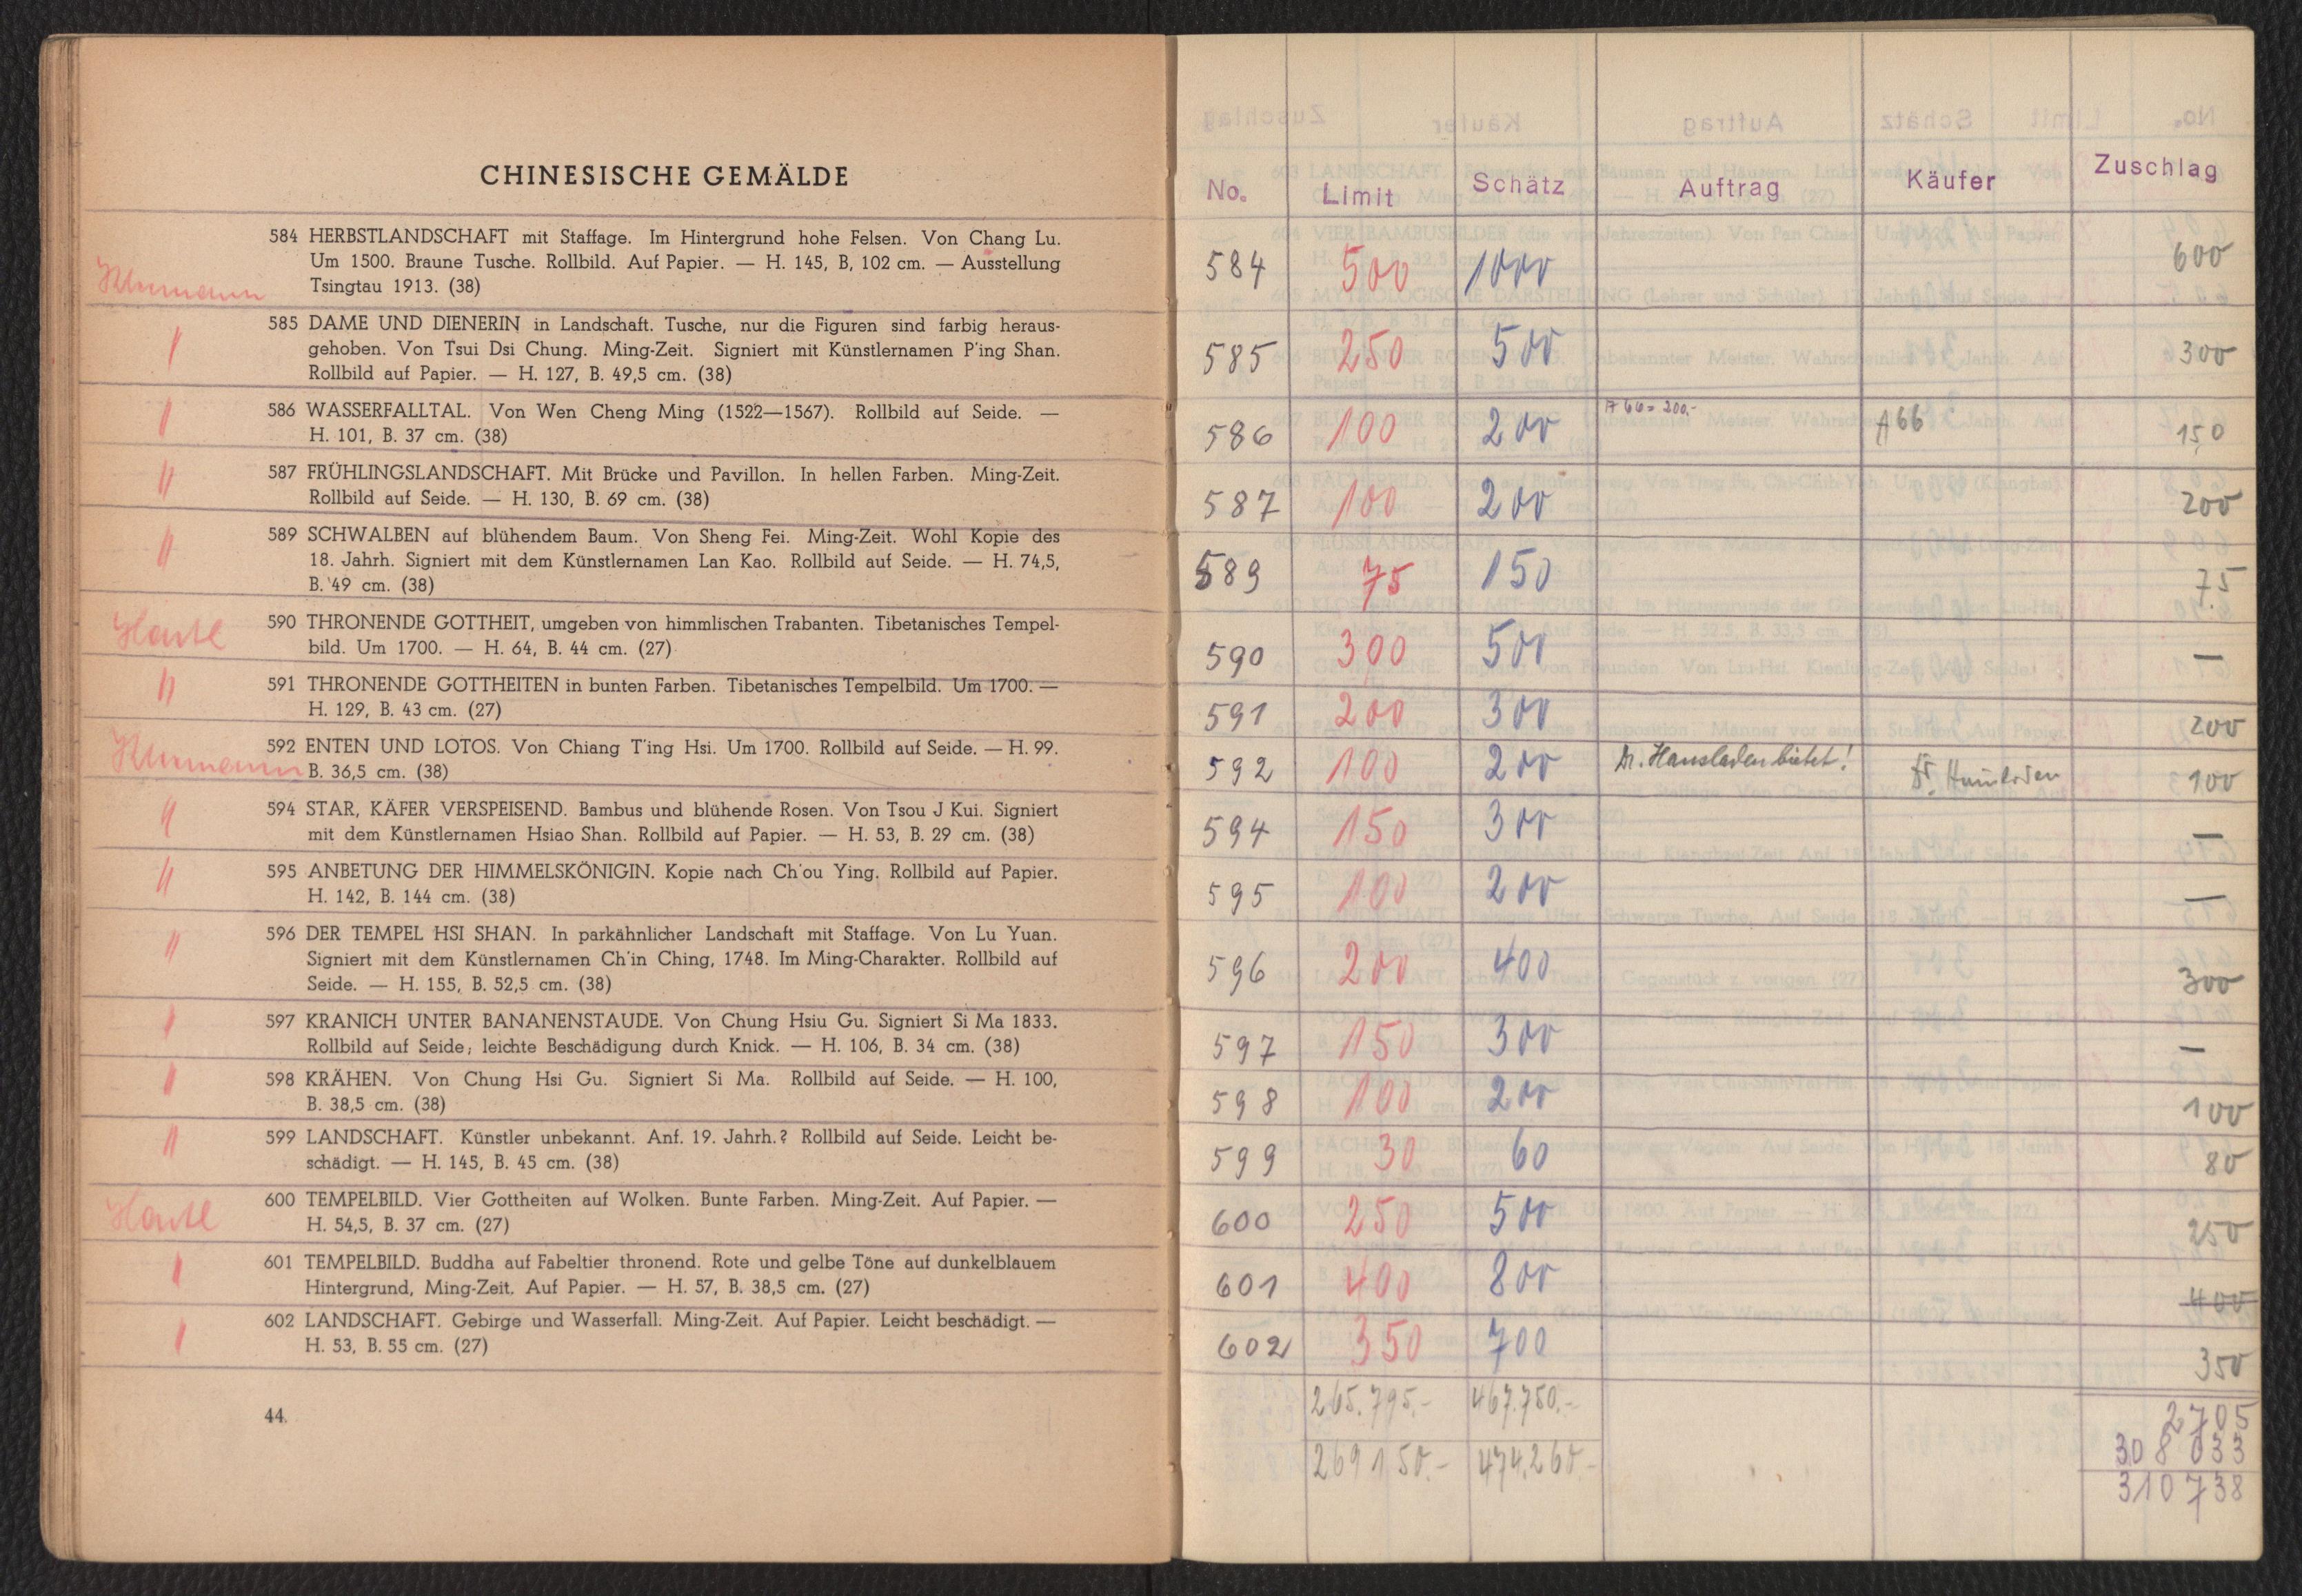 CHINESISCHE GEMÄLDE
584 HERBSTLANDSCHAFT mit Staffage. Im Hintergrund hohe Felsen. Von Chang Lu.
Um 1500. Braune Tusche. Rollbild. Auf Papier. — H. 145, B, 102 cm. — Ausstellung
Tsingtau 1913. (38)
585 DAME UND DIENERIN in Landschaft. Tusche, nur die Figuren sind farbig heraus-
gehoben. Von Tsui Dsi Chung. Ming-Zeit. Signiert mit Künstlernamen P'ing Shan.
Rollbild auf Papier. — H. 127, B. 49,5 cm. (38)
586 WASSERFALLTAL. Von Wen Cheng Ming (1522—1567). Rollbild auf Seide. —
H. 101, B. 37 cm. (38)
587 FRÜHLINGSLANDSCHAFT. Mit Brücke und Pavillon. In hellen Farben. Ming-Zeit.
Rollbild auf Seide. — H. 130, B. 69 cm. (38)
589 SCHWALBEN auf blühendem Baum. Von Sheng Fei. Ming-Zeit. Wohl Kopie des
18. Jahrh. Signiert mit dem Künstlernamen Lan Kao. Rollbild auf Seide. — H. 74,5,
B. 49 cm. (38)
590 THRONENDE GOTTHEIT, umgeben von himmlischen Trabanten. Tibetanisches Tempel-
bild. Um 1700. — H. 64, B. 44 cm. (27)
591 THRONENDE GOTTHEITEN in bunten Farben. Tibetanisches Tempelbild. Um 1700. —
H. 129, B. 43 cm. (27)
592 ENTEN UND LOTOS. Von Chiang T'ing Hsi. Um 1700. Rollbild auf Seide. — H. 99.
B. 36,5 cm. (38)
594 STAR, KÄFER VERSPEISEND. Bambus und blühende Rosen. Von Tsou J Kui. Signiert
mit dem Künstlernamen Hsiao Shan. Rollbild auf Papier. — H. 53, B. 29 cm. (38)
595 ANBETUNG DER HIMMELSKÖNIGIN. Kopie nach Ch'ou Ying. Rollbild auf Papier.
H. 142, B. 144 cm. (38)
596 DER TEMPEL HSI SHAN. In parkähnlicher Landschaft mit Staffage. Von Lu Yuan.
Signiert mit dem Künstlernamen Ch'in Ching, 1748. Im Ming-Charakter. Rollbild auf
Seide. — H. 155, B. 52,5 cm. (38)
597 KRANICH UNTER BANANENSTAUDE. Von Chung Hsiu Gu. Signiert Si Ma 1833.
Rollbild auf Seide; leichte Beschädigung durch Knick. — H. 106, B. 34 cm. (38)
598 KRÄHEN. Von Chung Hsi Gu. Signiert Si Ma. Rollbild auf Seide. — H. 100,
B. 38,5 cm. (38)
599 LANDSCHAFT. Künstler unbekannt. Anf. 19. Jahrh.? Rollbild auf Seide. Leicht be-
schädigt. — H. 145, B. 45 cm. (38)
600 TEMPELBILD. Vier Gottheiten auf Wolken. Bunte Farben. Ming-Zeit. Auf Papier. —
H. 54,5, B. 37 cm. (27)
601 TEMPELBILD. Buddha auf Fabeltier thronend. Rote und gelbe Töne auf dunkelblauem
Hintergrund, Ming-Zeit. Auf Papier. — H. 57, B. 38,5 cm. (27)
602 LANDSCHAFT. Gebirge und Wasserfall. Ming-Zeit. Auf Papier. Leicht beschädigt. —
H. 53, B. 55 cm. (27)
44.
No. Limit Schätz Auftrag Käufer Zuschlag
584 500 1000 600
585 250 500 300
586 100 200 A 66 = 200.- A 66 150
587 100 200 200
589 75 150 75
590 300 500 —
591 200 300 200
592 100 200 Dr. Hausladen bietet! Dr. 100
594 150 300 —
595 100 200 —
596 200 400 300
597 150 300 —
598 100 200 100
599 30 60 80
600 250 500 250
601 400 800 400
602 350 700 350
265.795.- 467.750.- 2705
308 033
269150.- 474.260.- 310738